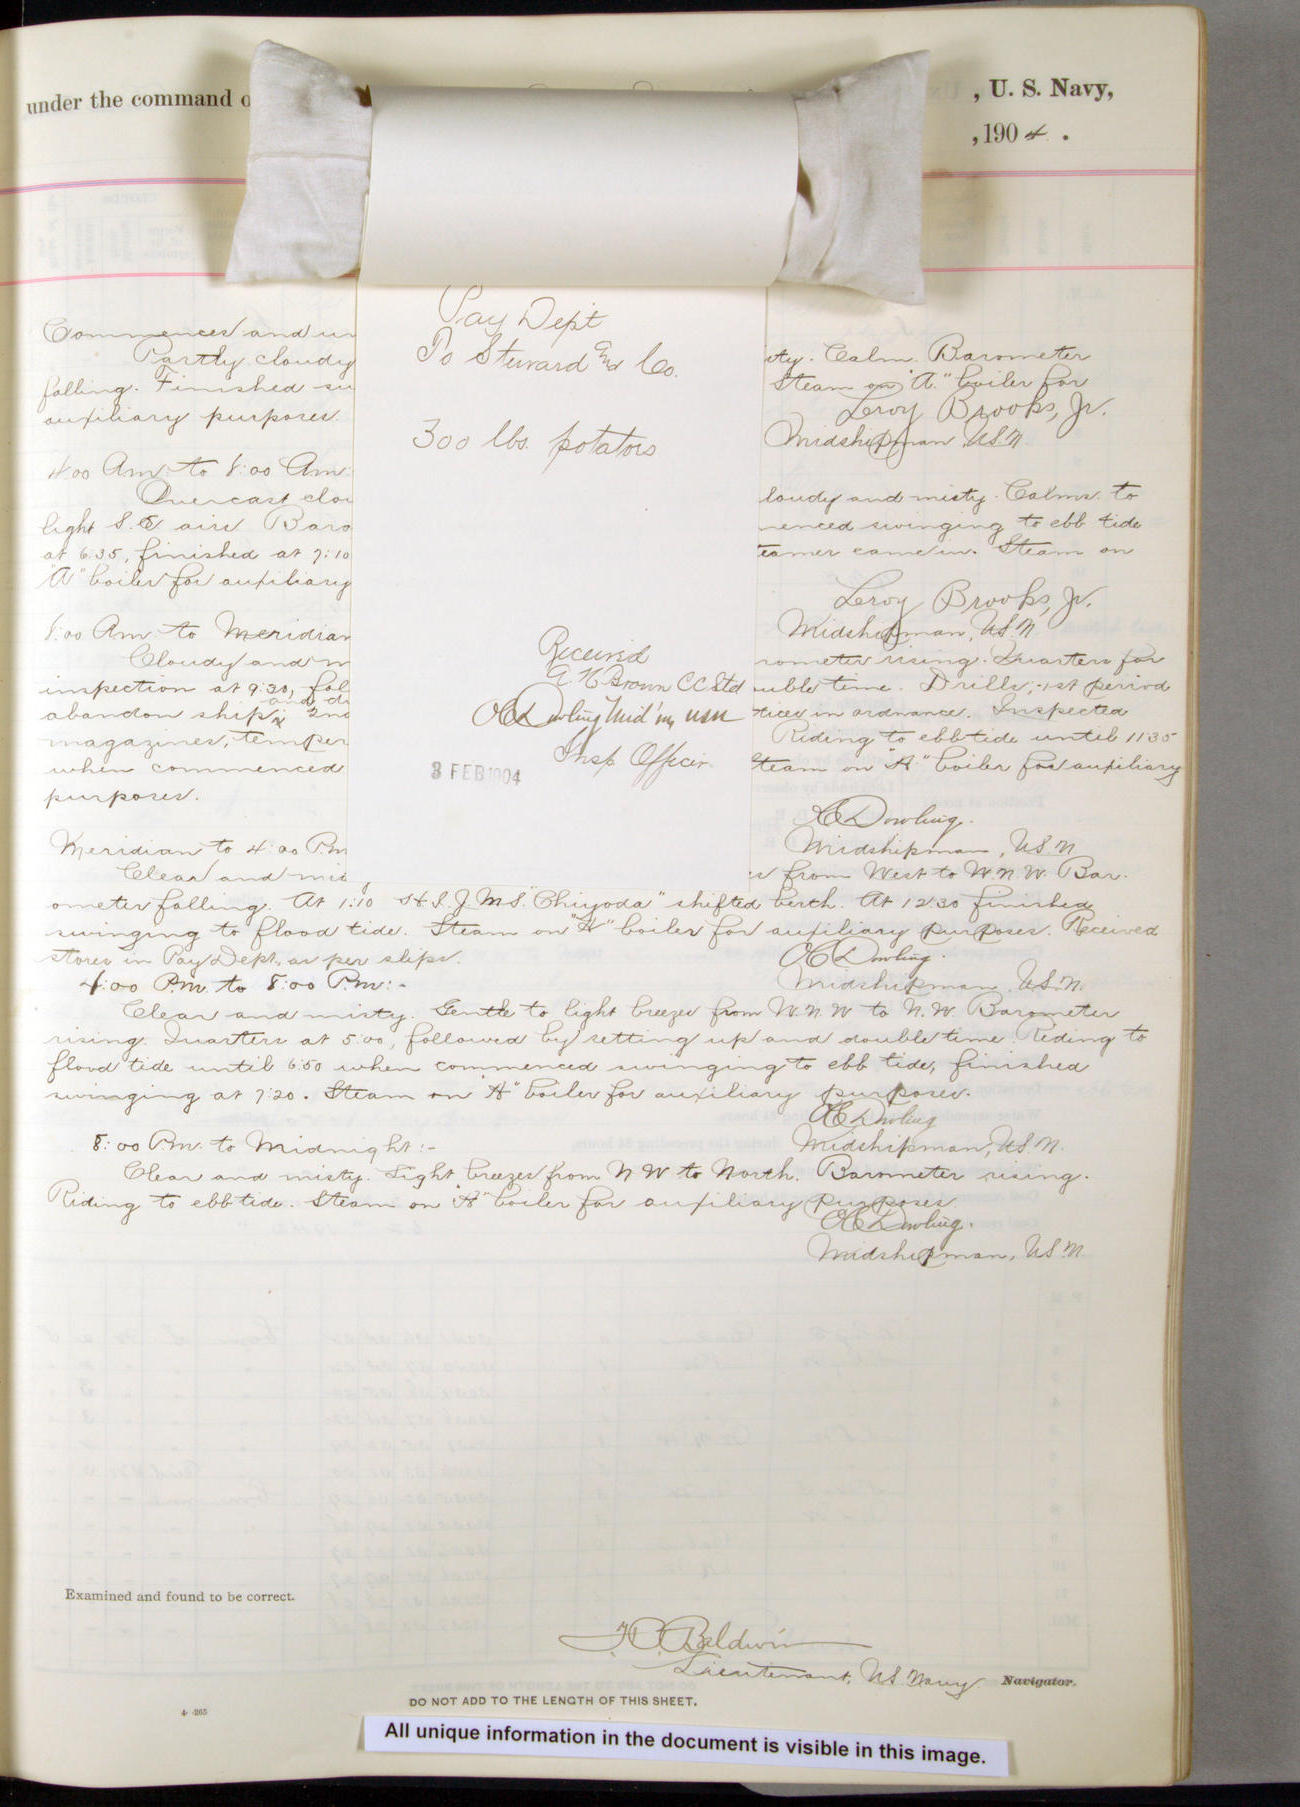 under the command o
, U. S. Navy,
, 1904.
Commences and un
Partly cloudy
sty. Calm. Barometer
falling. Finished sw
Steam on "A" boiler for
auxiliary purposes.
Leroy Brooks, Jr.
Midshipman U.S.N.
4:00 Am. to 8:00 Am.
Overcast clou
loudy and misty. Calms to
light S.E. airs Baro
menced swinging to ebb tide
at 6:35, finished at 7:10
teamer came in. Steam on
"A" boiler for auxiliary
Leroy Brooks, Jr.
Midshipman, U.S.N.
8:00 Am. to Meridian
Cloudy and m
rometer rising. Quarters for
inspection at 9:30, fol
ouble time. Drills;-1st period
abandon ship, and 2nd
tices in ordnance. Inspected
magazines, temper
Riding to ebb tide until 11:35
when commenced
Steam on "A" boiler for auxiliary
purposes.
Dowling.
Midshipman, U.S.N
Meridian to 4:00 P.M
Clear and mis
s from West to W.N.W. Bar-
Pay Dept
To Steward and Co.
300 lbs. potatos
Received
G. H. Brown CC Std
Dowling Mid'm, USN
Insp Officer.
3 FEB 1904
ometer falling. At 1:10 H.I.J.M.S. "Chiyoda" shifted berth. At 12:30 finished
swinging to flood tide. Steam on "A" boiler for auxiliary purposes. Received
stores in Pay Dept. as per slips.
Dowling.
Midshipman, U.S.N.
4:00 P.M. to 8:00 P.M:-
Clear and misty. Gentle to light breezes from W.N.W to N.W. Barometer
rising. Quarters at 5:00, followed by setting up and double time. Riding to
flood tide until 6:50 when commenced swinging to ebb tide, finished
swinging at 7:20. Steam on "A" boiler for auxiliary purposes.
Dowling
Midshipman, U.S.N.
8:00 P.M. to Midnight:-
Clear and misty. Light breezes from N.W to North. Barometer rising.
Riding to ebb tide. Steam on "A" boiler for auxiliary purposes.
Dowling.
Midshipman, U.S.N.
Examined and found to be correct.
Baldwin
Lieutenant, U.S. Navy Navigator.
DO NOT ADD TO THE LENGTH OF THIS SHEET.
4-265
All unique information in the document is visible in this image.